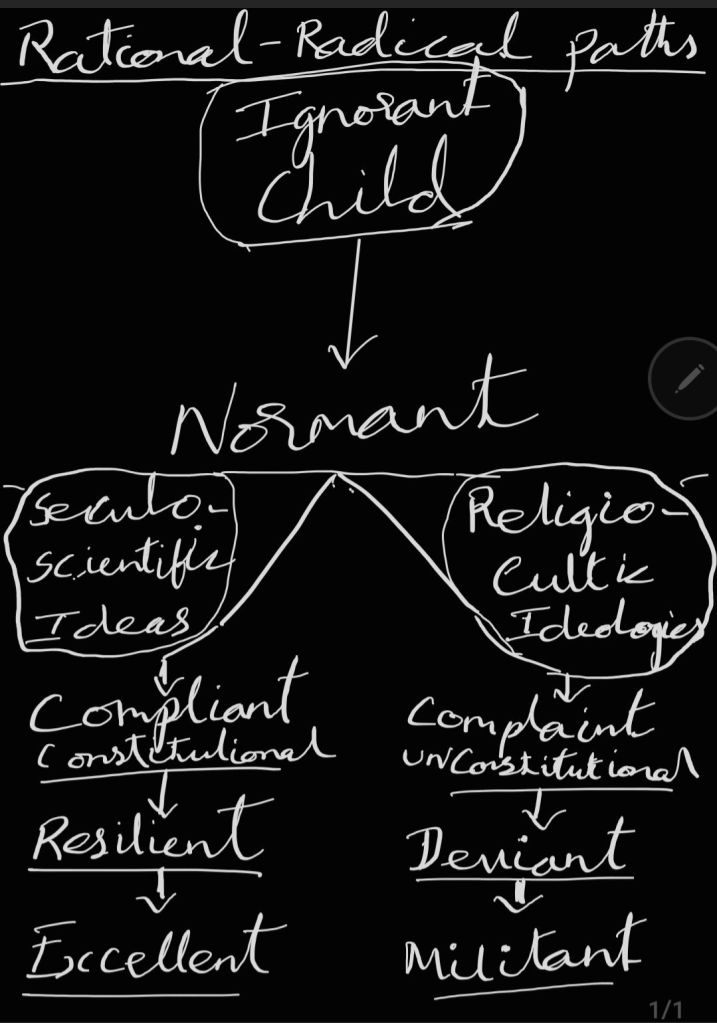 Rational-Radical paths
Ignorant
Child
Normant
Seculo-
Scientific
Ideas
Religio-
Cultic
Ideologies
Compliant
Constitutional
Complaint
unConstitutional
Resilient
Deviant
Excellent
Militant
1/1